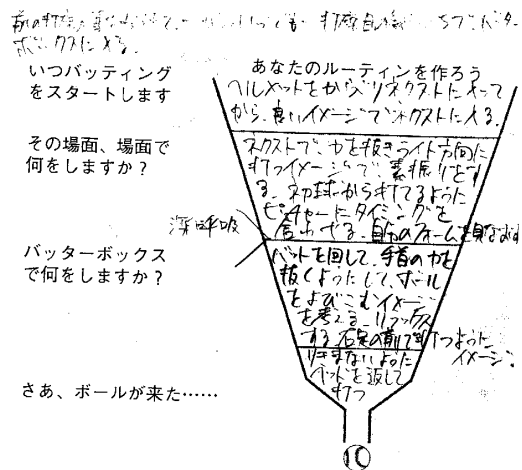 前の打席
打席
ボックスに入る。
いつバッティング
をスタートします
あなたのルーティンを作ろう
ヘルメットをかぶりネクストに入って
から、良いイメージでネクストに入る。
その場面、場面で
何をしますか?
ネクストで、力を抜きライト方向に
打つイメージで、素振りをす
る。初球から打てるように
ピッチャーにタイミングを
合わせる。自分のフォームを見なおす
深呼吸
バッターボックス
で何をしますか?
バットを回して、手首の力を
抜くようにして、ボール
をよびこむイメージ
を考える。リラックス
する。右足の前で打つように
イメージ。
さあ、ボールが来た……
りきまないように
ヘッドを返して
打つ